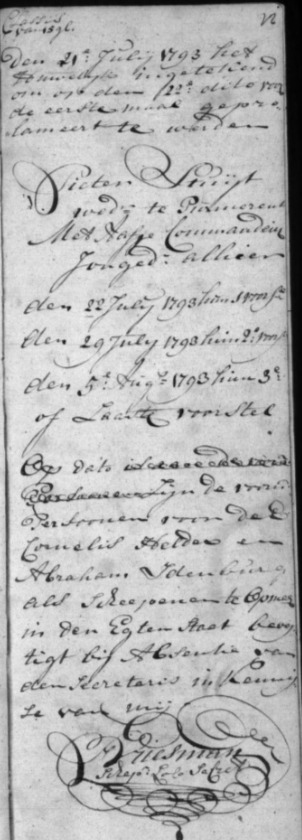 Classis
van 30 gl.
Den 21e July 1793 het
Huwelyk ingetekend
om op den 22e dito voor
de eerste maal gepro
clameert te werden
Pieter Stuijt
wedr te Pumerent
Met Aafje Commandeur
Jonged: alhier
den 22 July 1793 hun 1 voorst
den 29 July 1793 hun 2e voorst
den 5e Augt 1793 hun 3e
of Laatste voorstel
Op dato
zijn de voorn
Persoonen voor de E
Cornelis Helder en
Abraham Idenburg
als Scheepenen te Opmeer
in den Egten Staat beves
tigt bij Absentie van
den Secretaris in Kenni
se van mij